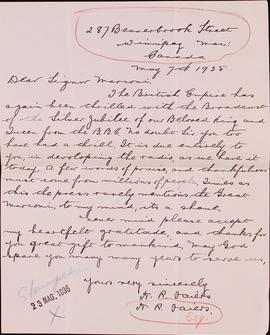 287 Beaverbrook Street
Winnipeg Man:
Canada
May 7th 1935
Dear Signor Marconi.
The British Empire has
again been thrilled with the Broadcast
of the Silver Jubilee of our Beloved King and
Queen from the B.B.C. No doubt Sir you too
have had a thrill. It is due entirely to
you, in developing the radio, as we have it
today. A few words of praise, and thankfulness
must come from millions of people, times as
this the press rarely mentions the Great
Marconi, to my mind, its a shame,
never mind please accept
my heartfelt gratitude, and thanks for
you great gift to mankind, May God
spare you many many years to serve us,
Yours very sincerely
H. R.
H. R.
Esq.
23 MAG. 1935
X